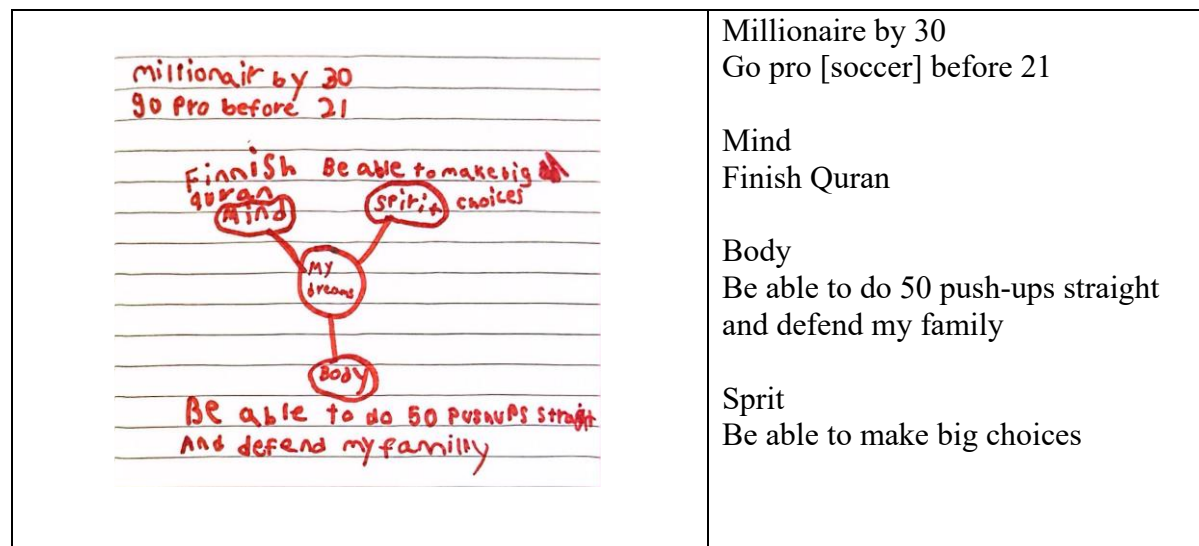 millionair by 30
go pro before 21
Finnish
quran
Mind
Be able to make big
choices
Spirit
My
dreams
Body
Be able to do 50 pushups straight
And defend my familly
Millionaire by 30
Go pro [soccer] before 21
Mind
Finish Quran
Body
Be able to do 50 push-ups straight
and defend my family
Sprit
Be able to make big choices